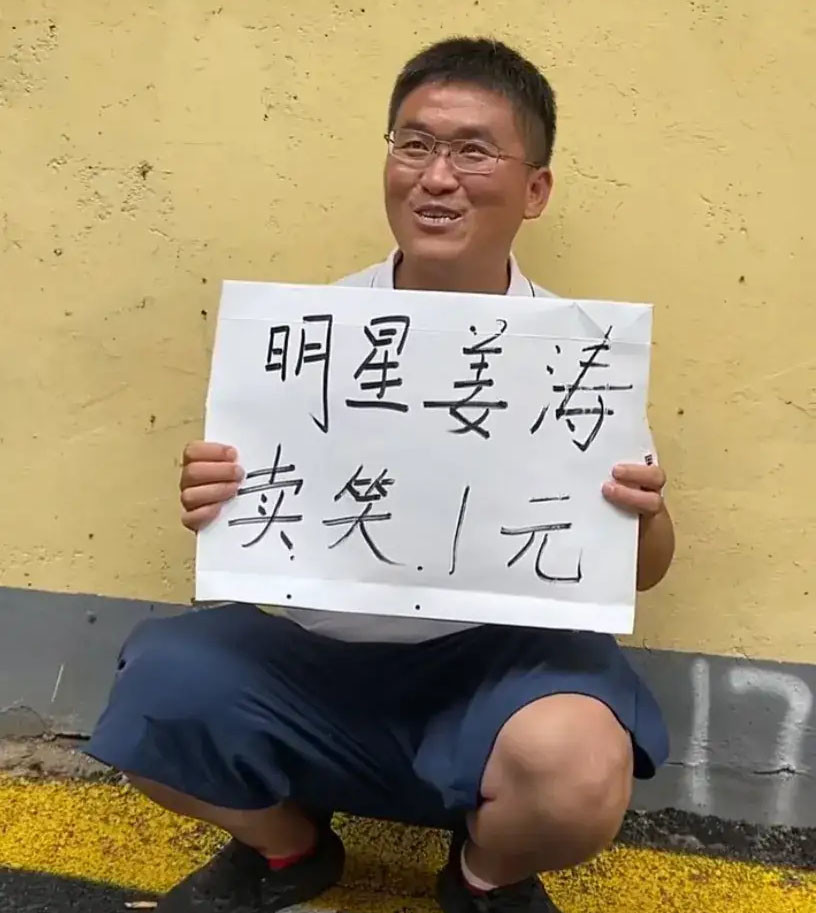 明星姜涛
卖笑.1元
17